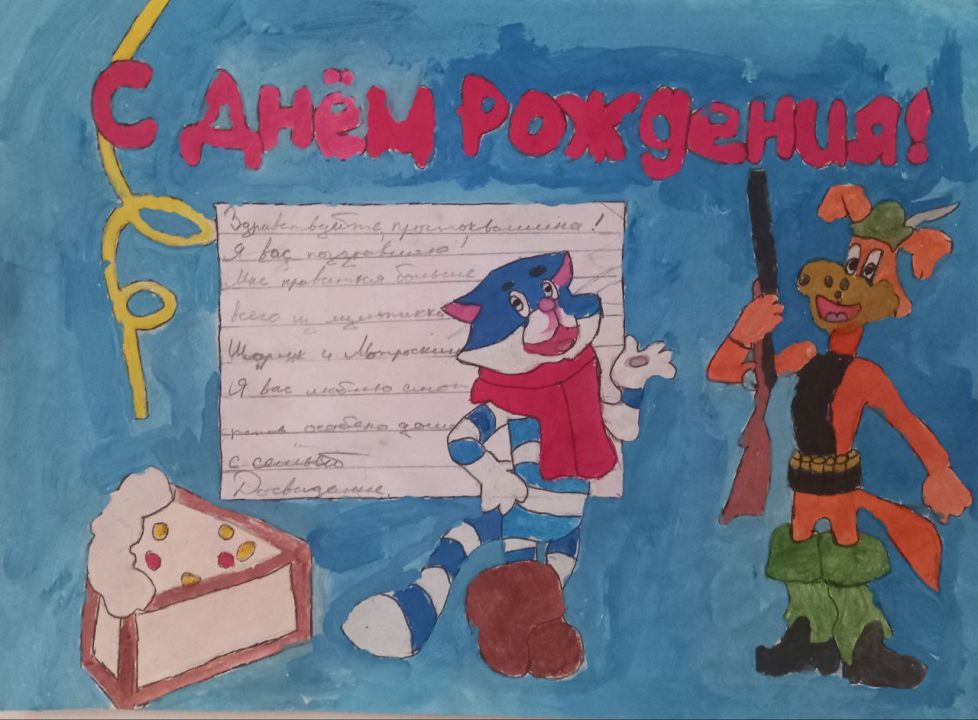 С Днём Рождения!
Здравствуйте, простоквашина!
Я вас поздравляю!
Мне нравиться больше
всего из мультика
Шарик и Матроскин
Я вас люблю смот
особено дома
с семьёю
Досвидание.